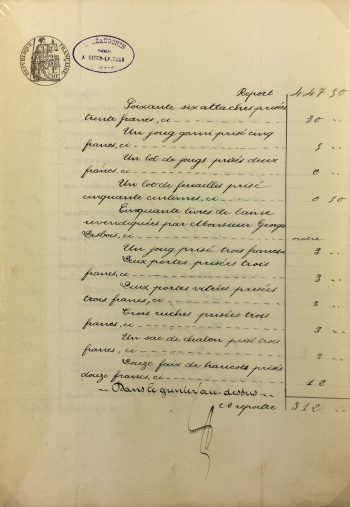 RÉPUBLIQUE FRANÇAISE
Report 447 50
Soixante six attaches prisées
trente francs, ci 30 "
Un joug garni prisé cinq
francs, ci 5 "
Un lot de jougs prisés deux
francs, ci 2 "
Un lot de feuilles prisé
cinquante centimes, ci 0 50
Cinquante livres de laine
revendiquées par Monsieur Georges
Desbois, ci ordre
Un joug prisé trois francs 3 "
Deux portes prisées trois
francs, ci 3 "
Deux portes vitrées prisées
trois francs, ci 3 "
Trois ruches prisées trois
francs, ci 3 "
Un sac de prisé trois
francs, ci 3 "
Douze faux de haricots prisés
douze francs, ci 12
" Dans le grenier au-dessus
A reporter 512 "